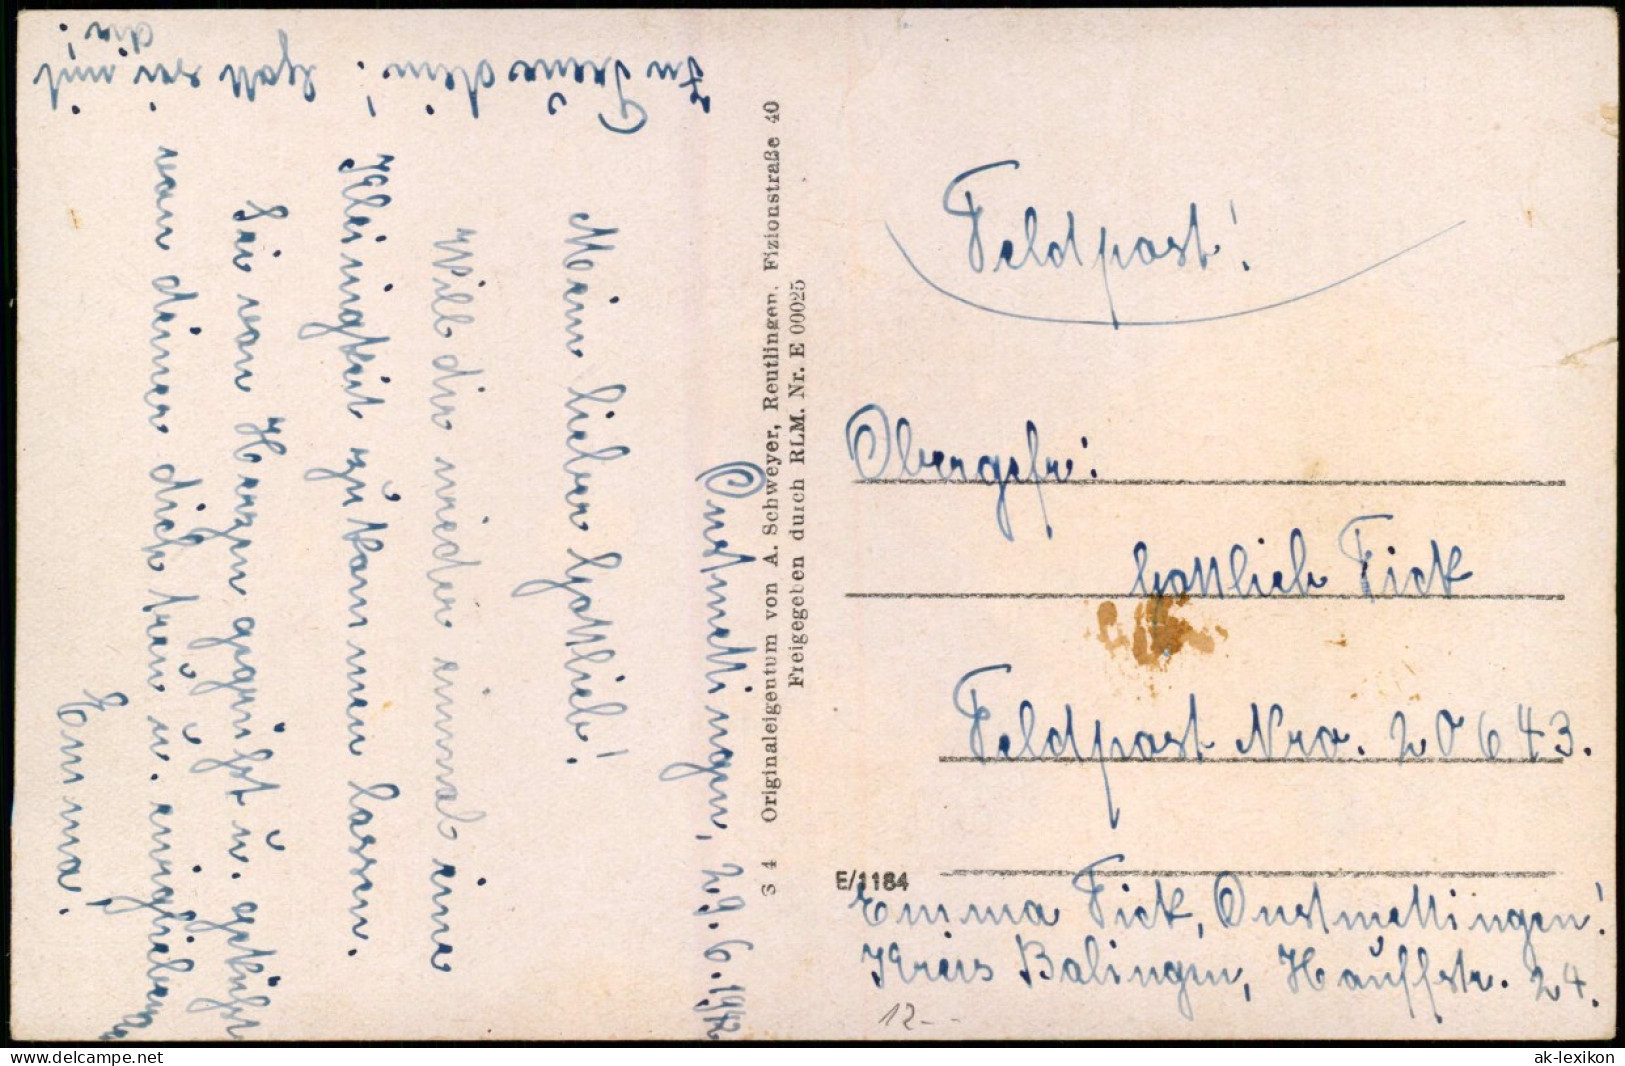 Onstmettingen, 29.6.1942
Mein lieber Gottlieb!
Will dir wieder einmal eine
Kleinigkeit zukommen lassen.
Sei von Herzen gegrüßt u. geküßt
von deiner dich treu u. innigliebenden
Emma.
In Treue dein! Gott sei mit
dir!
S 4 Originaleigentum von A. Schweyer, Reutlingen, Fizionstraße 40
Freigegeben durch RLM. Nr. E 00025
Feldpost!
Obergefr:
Gottlieb Fick
Feldpost Nro. 20643.
E/1184
Emma Fick, Onstmettingen!
Kreis Balingen, Hauffstr. 24.
12.--
delcampe.net
ak-lexikon